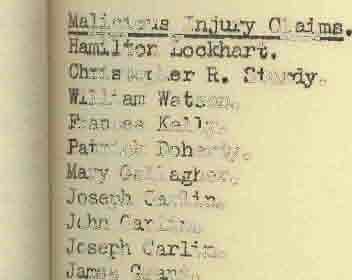 Malicious Injury Claims.
Hamilton Lockhart.
Christopher R. Sturdy.
William Watson.
Frances Kelly.
Patrick Doherty.
Mary Gallagher.
Joseph Carlin.
John Carlin.
Joseph Carlin.
James